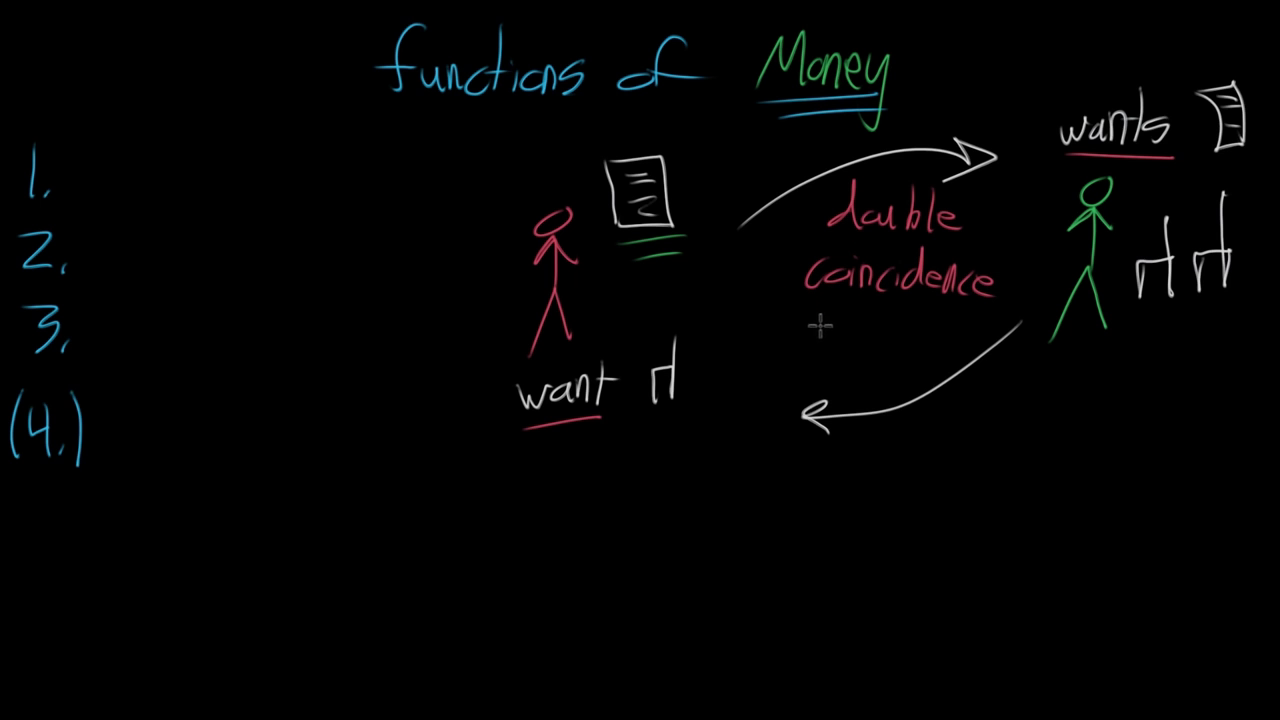 functions of Money
1.
2.
3.
(4.)
want
double
coincidence
wants